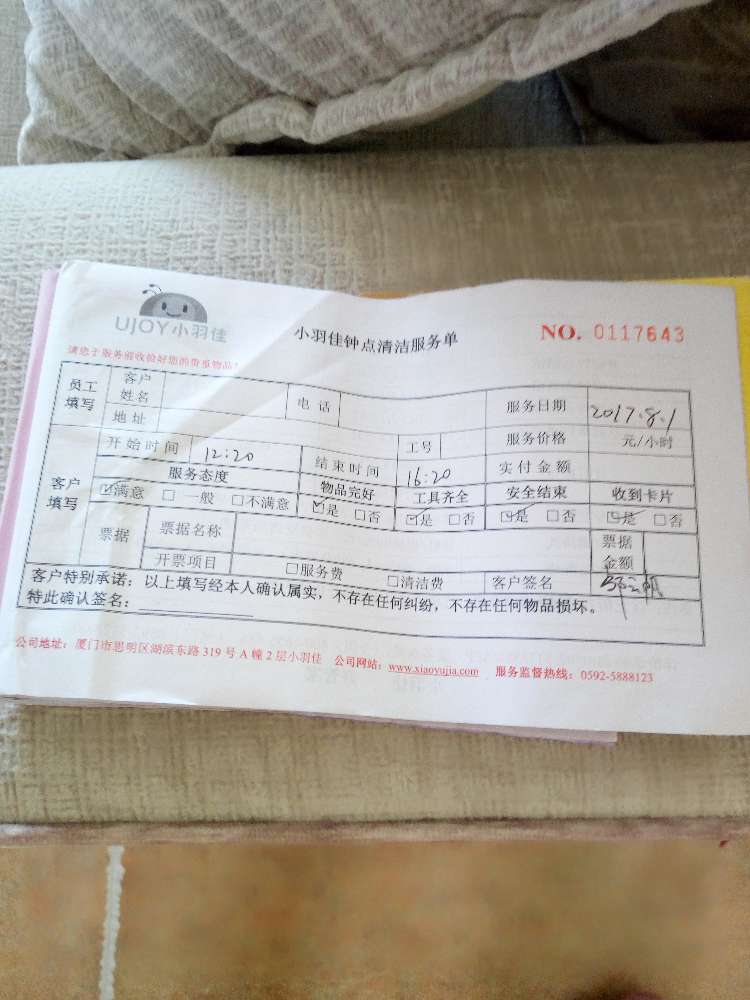 UJOY小羽佳
小羽佳钟点清洁服务单
NO. 0117643
请您于服务前收拾好您的贵重物品!
员工填写 客户姓名 电话 服务日期 2017.8.1
地址 工号 服务价格 元/小时
客户填写 开始时间 12:20 结束时间 16:20 实付金额
服务态度 物品完好 工具齐全 安全结束 收到卡片
☑满意 □一般 □不满意 ☑是 □否 ☑是 □否 ☑是 □否 ☑是 □否
票据 票据名称 票据金额
开票项目 □服务费 □清洁费 客户签名
客户特别承诺：以上填写经本人确认属实，不存在任何纠纷，不存在任何物品损坏。
特此确认签名：
公司地址：厦门市思明区湖滨东路 319 号 A 幢 2 层小羽佳 公司网站：www.xiaoyujia.com 服务监督热线：0592-5888123